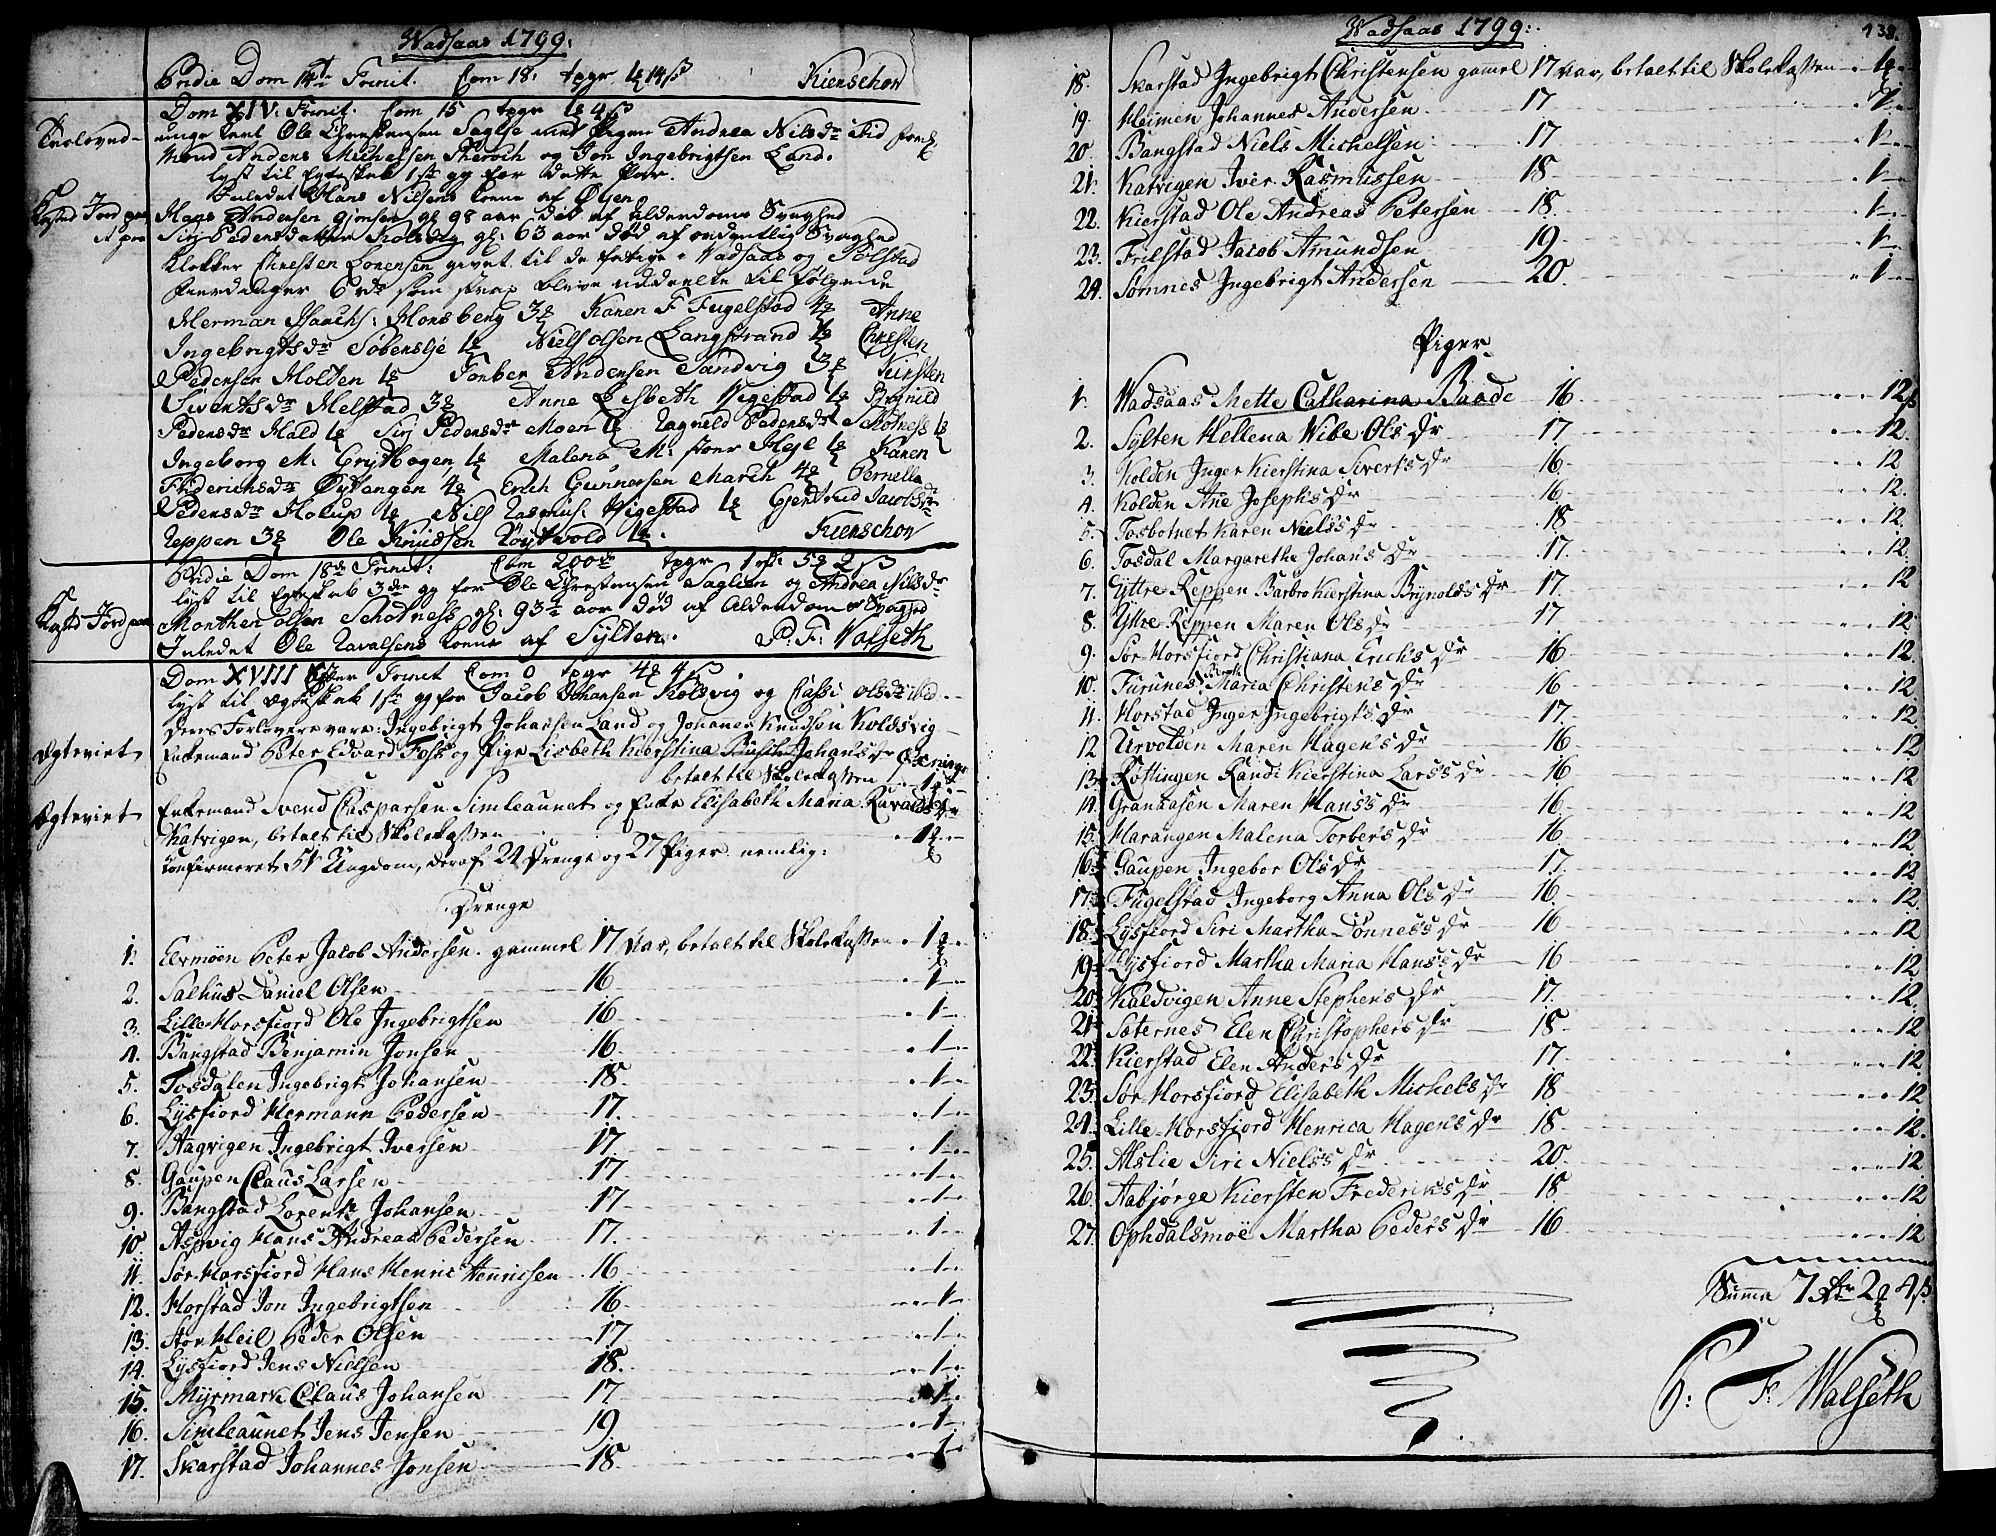 Wadsaas 1799.
Pridie Dom 14de Trinit. Com 18. Kierschow
Dom XIV. Trinit. Com 15
Troloved
unge Karl Ole Christensen og Pigen Andrea Nilsdr ibid
Anders Michelsen og Jon Ingebrigtsen Land.
lyst til Egteskab 1ste gg for dette Par.
Inledet Hans Nilsens Kone af Øyen
Kasted Jord paa
Hans Andersen gl. 98 aar død af Alderdoms Svaghed
Siri Pedersdatter Kolsvig gl. 63 aar død af ordentlig Svaghed
Klokker Christen Lorensen givet til de fattige i Wadsaas og
6 rd som strax bleve uddeelte til følgende
Herman Isachs: Horsberg 3 Karen F Fugelstad 4 Anne
Ingebrigtsdr Nielsolsen Langstrand Christen
Pedersen Holden Torber Andersen Sandvig 3
Sivertsdr Melstad 3 Anne Lisbeth Brynild
Pedersdr Hald Siri Pedersdr Moen Ragnild Pedersdr Schotness
Ingeborg M. Malena M. Karen
Friderichsdr Øyvangen 4 Erich Gunnersen March 4 Pernella
Pedersdr Nils Rasmus: Gjertrud Jacobsdr
Reppen 3 Ole Knudsen Kierschow
Pridie Dom 18de Trinit: Com 200
lyst til Egteskab 3de gg for Ole Christensen og Andrea Nilsdr
Kasted Jord paa
Morthen olsen Schotness gl. 93½ aar død af Alderdoms Svaghed
Inledet Ole Kone af Sylten. P: F: Walseth
Dom XVIII Efter Trinit Com 0
lyst til Egteskab 1ste gg for Jacob Johansen Kolsvig og olsdr ibid.
Deres Forlovere vare: Ingebrigt Johansen Land og Johanes Knudsøn Koldsvig
Ægteviet
Enkemand Peter Edvard og Pige Lisbeth Kierstina Johansdr
betalt til Skolekassen 1
Ægteviet
Enkemand Svend Casparsen Simleaunet og Enke Elisabeth Maria
Hatvigen, betalt til Skolekassen 1
Confirmeret 51 Ungdom, deraf 24 Drenge og 27 Piger nemlig:
Drenge
1. Elvmoen Peter Jacob Andersen gammel 17 Aar, betalt til Skolekassen 1
2. Salhus Daniel Olsen 16 1
3. Lille Horsfiord Ole Ingebrigtsen 16 1
4. Bangstad Benjamin Jonsen 16 1
5. Tosdalen Ingebrigt Johansen 18 1
6. Lysfiord Hermann Pedersen 17 1
7. Aagvigen Ingebrigt Iversen 17 1
8. Gaupen Claus Larsen 17 1
9. Bangstad Lorentz Johansen 17 1
10. Aspvig Hans Andreas Pedersen 17 1
11. Sør-Horsfiord Hans Henric Henricsen 16 1
12. Horstad Jon Ingebrigtsen 16 1
13. Stor Heil Peder Olsen 17 1
14. Lysfiord Jens Nielsen 18 1
15. Myrmark Claus Johansen 17 1
16. Simleaunet Jens Jensen 19 1
17. Skarstad Johannes Jonsen 18 1
Wadsaas 1799. 138.
18. Skarstad Ingebrigt Christensen gamel 17 Aar, betalt til Skolekassen 1
19. Heimen Johannes Andersen 17 1
20. Bangstad Niels Michelsen 17 1
21. Hatvigen Iver Rasmussen 18 1
22. Kierstad Ole Andreas Petersen 18 1
23. Trælstad Jacob Amundsen 19 1
24. Somnes Ingebrigt Andersen 20 1
Piger
1. Wadsaas Mette Catharina Baade 16 12
2. Sylten Hellena Wibe Ols Dr 17 12
3. Holden Inger Kierstina Siverts Dr 16 12
4. Holden Ane Josephs Dr 16 12
5. Tosbotnet Karen Niels's Dr 18 12
6. Tosdal Margaretha Johans Dr 17 12
7. Yttre Reppen Barbro Kierstina Brynolds Dr 17 12
8. Yttre Reppen Maren Ols Dr 17 12
9. Sør Horsfiord Christiana Erichs Dr 16 12
10. Furunes Bereth Maria Christens Dr 16 12
11. Horstad Inger Ingebrigts Dr 17 12
12 Urvolden Maren Hagens Dr 16 12
13. Røttingen Randi Kierstina Lars's Dr 16 12
14. Granaasen Maren Hans's Dr 16 12
15. Harangen Malena Torbers Dr 16 12
16. Gaupen Ingebor Ols Dr 17 12
17. Fugelstad Ingeborg Anna Ols Dr 16 12
18. Lysfiord Siri Martha Tønness Dr 16 12
19. Lysfiord Martha Maria Hans's Dr 16 12
20. Koldvigen Anne Stephens Dr 17 12
21. Sæternes Elen Christophers Dr 18 12
22. Kierstad Elen Anders Dr 17 12
23. Sør Horsfiord Elisabeth Michels Dr 18 12
24. Lille-Horsfiord Henrica Hagens Dr 18 12
25. Aslie Siri Niels's Dr 20 12
26. Aabjørge Kiersten Frederiks Dr 18 12
27. Ophdalsmoe Martha Peders Dr 16 12
Summa 7 Rdr 2 4 ß
P: F: Walseth